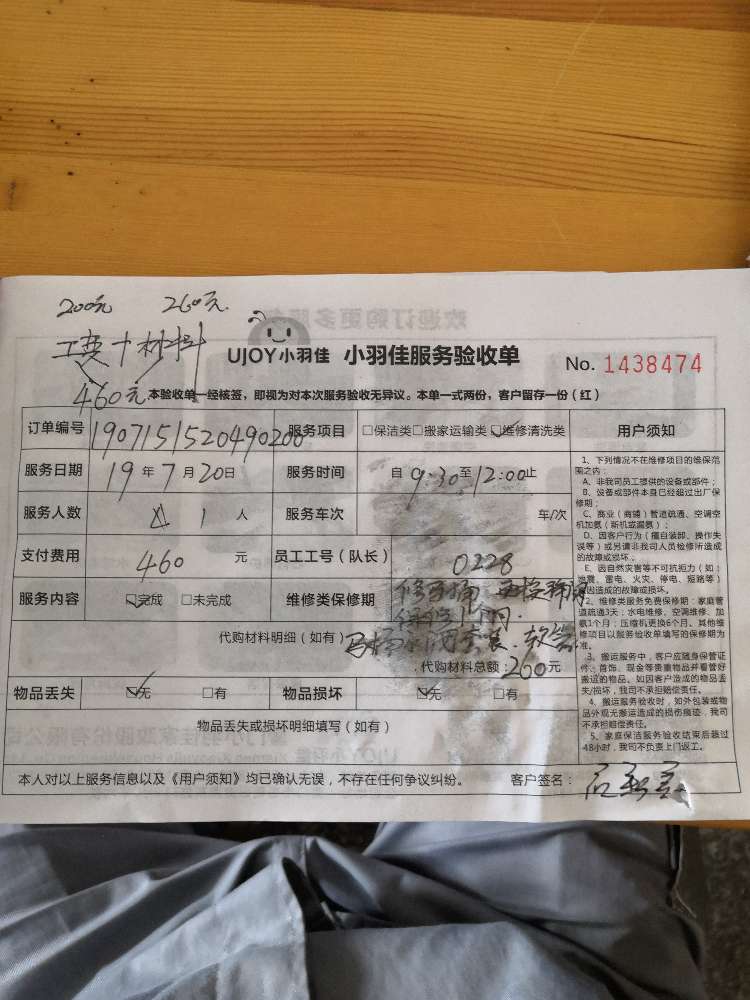 200元 260元
工费十材料
460元
UJOY小羽佳 小羽佳服务验收单 No. 1438474
本验收单一经核签，即视为对本次服务验收无异议。本单一式两份，客户留存一份（红）
订单编号 1907151520490200 服务项目 □保洁类□搬家运输类☑维修清洗类 用户须知
服务日期 19年7月20日 服务时间 自9:30至12:00止
服务人数 1人 服务车次 车/次
支付费用 460元 员工工号（队长） 0228
服务内容 ☑完成 □未完成 维修类保修期
保修1个月.
代购材料明细（如有） 马桶 套装、软管
代购材料总额：260元
物品丢失 ☑无 □有 物品损坏 ☑无 □有
物品丢失或损坏明细填写（如有）
本人对以上服务信息以及《用户须知》均已确认无误，不存在任何争议纠纷。 客户签名：
1、下列情况不在维修项目的维保范
围之内：
A、非我司员工提供的设备或部件；
B、设备或部件本身已经超过出厂保
修期；
C、商业（商铺）管道疏通、空调空
机加氨（新机或漏氨）；
D、因客户行为（擅自装卸、操作失
误等）或另请非我司人员检修所造成
的故障或损坏；
E、因自然灾害等不可抗拒力（如：
地震、雷电、火灾、停电、短路等）
因造成的故障或损坏。
2、维修类服务免费保修期：家庭管
道疏通3天；水电维修、空调维修、加
氨1个月；压缩机更换6个月。其他维
修项目以服务验收单填写的保修期为
准。
3、搬运服务中，客户应随身保管证
件、首饰、现金等贵重物品并看管好
搬运的物品。如因客户造成的物品丢
失/损坏，我司不承担赔偿责任。
4、搬运服务验收时，如外包装或物
品外观无搬运造成的损伤痕迹，我司
不承担赔偿责任。
5、家庭保洁服务验收结束后超过
48小时，我司不负责上门返工。